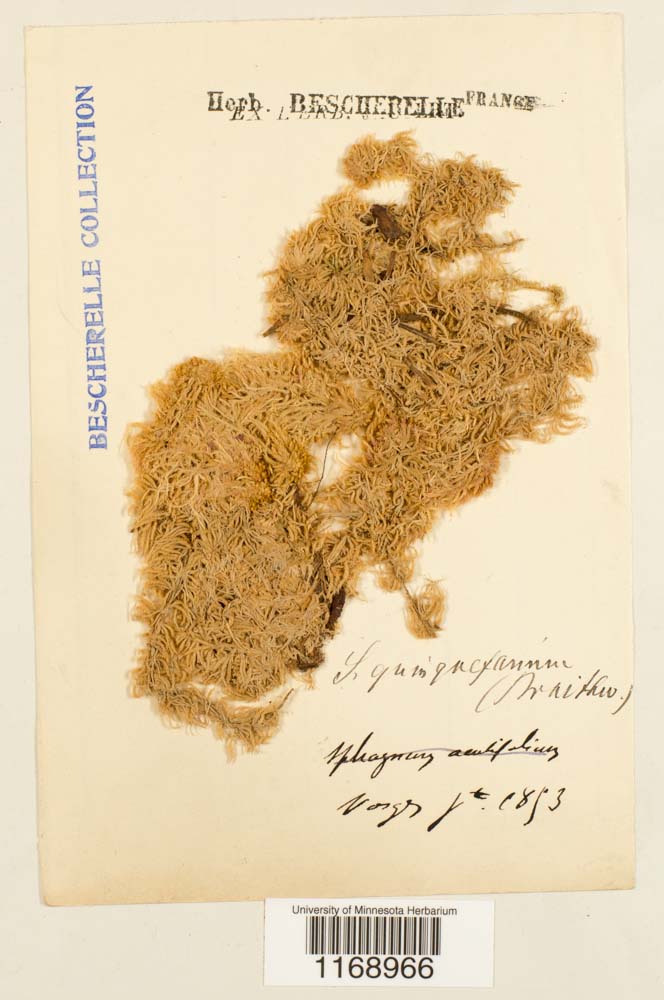 Herb. BESCHERELLE FRANCE
EX HERB.
BESCHERELLE COLLECTION
S. quinquefarium
(Braithw.)
Sphagnum acutifolium
Vosges 1853
University of Minnesota Herbarium
1168966